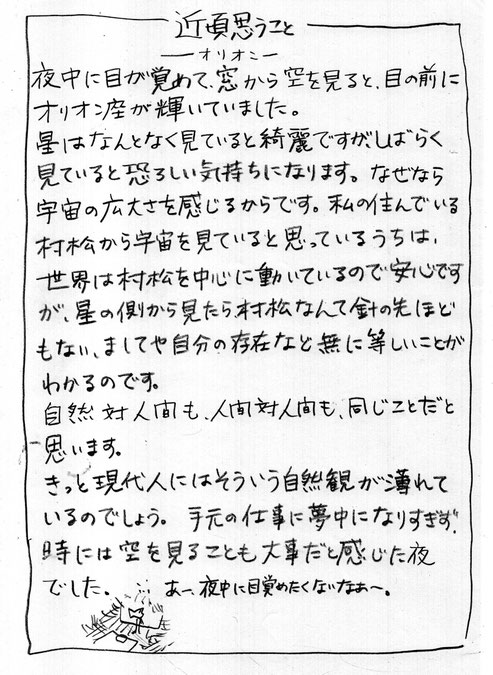 近頃思うこと
―オリオン―
夜中に目が覚めて、窓から空を見ると、目の前に
オリオン座が輝いていました。
星はなんとなく見ていると綺麗ですが、しばらく
見ていると恐ろしい気持ちになります。なぜなら
宇宙の広大さを感じるからです。私の住んでいる
村松から宇宙を見ていると思っているうちは、
世界は村松を中心に動いているので安心です
が、星の側から見たら村松なんて針の先ほど
もない、ましてや自分の存在など無に等しいことが
わかるのです。
自然対人間も、人間対人間も、同じことだと
思います。
きっと現代人にはそういう自然観が薄れて
いるのでしょう。手元の仕事に夢中になりすぎず、
時には空を見ることも大事だと感じた夜
でした。
あー、夜中に目覚めたくないなぁ〜。